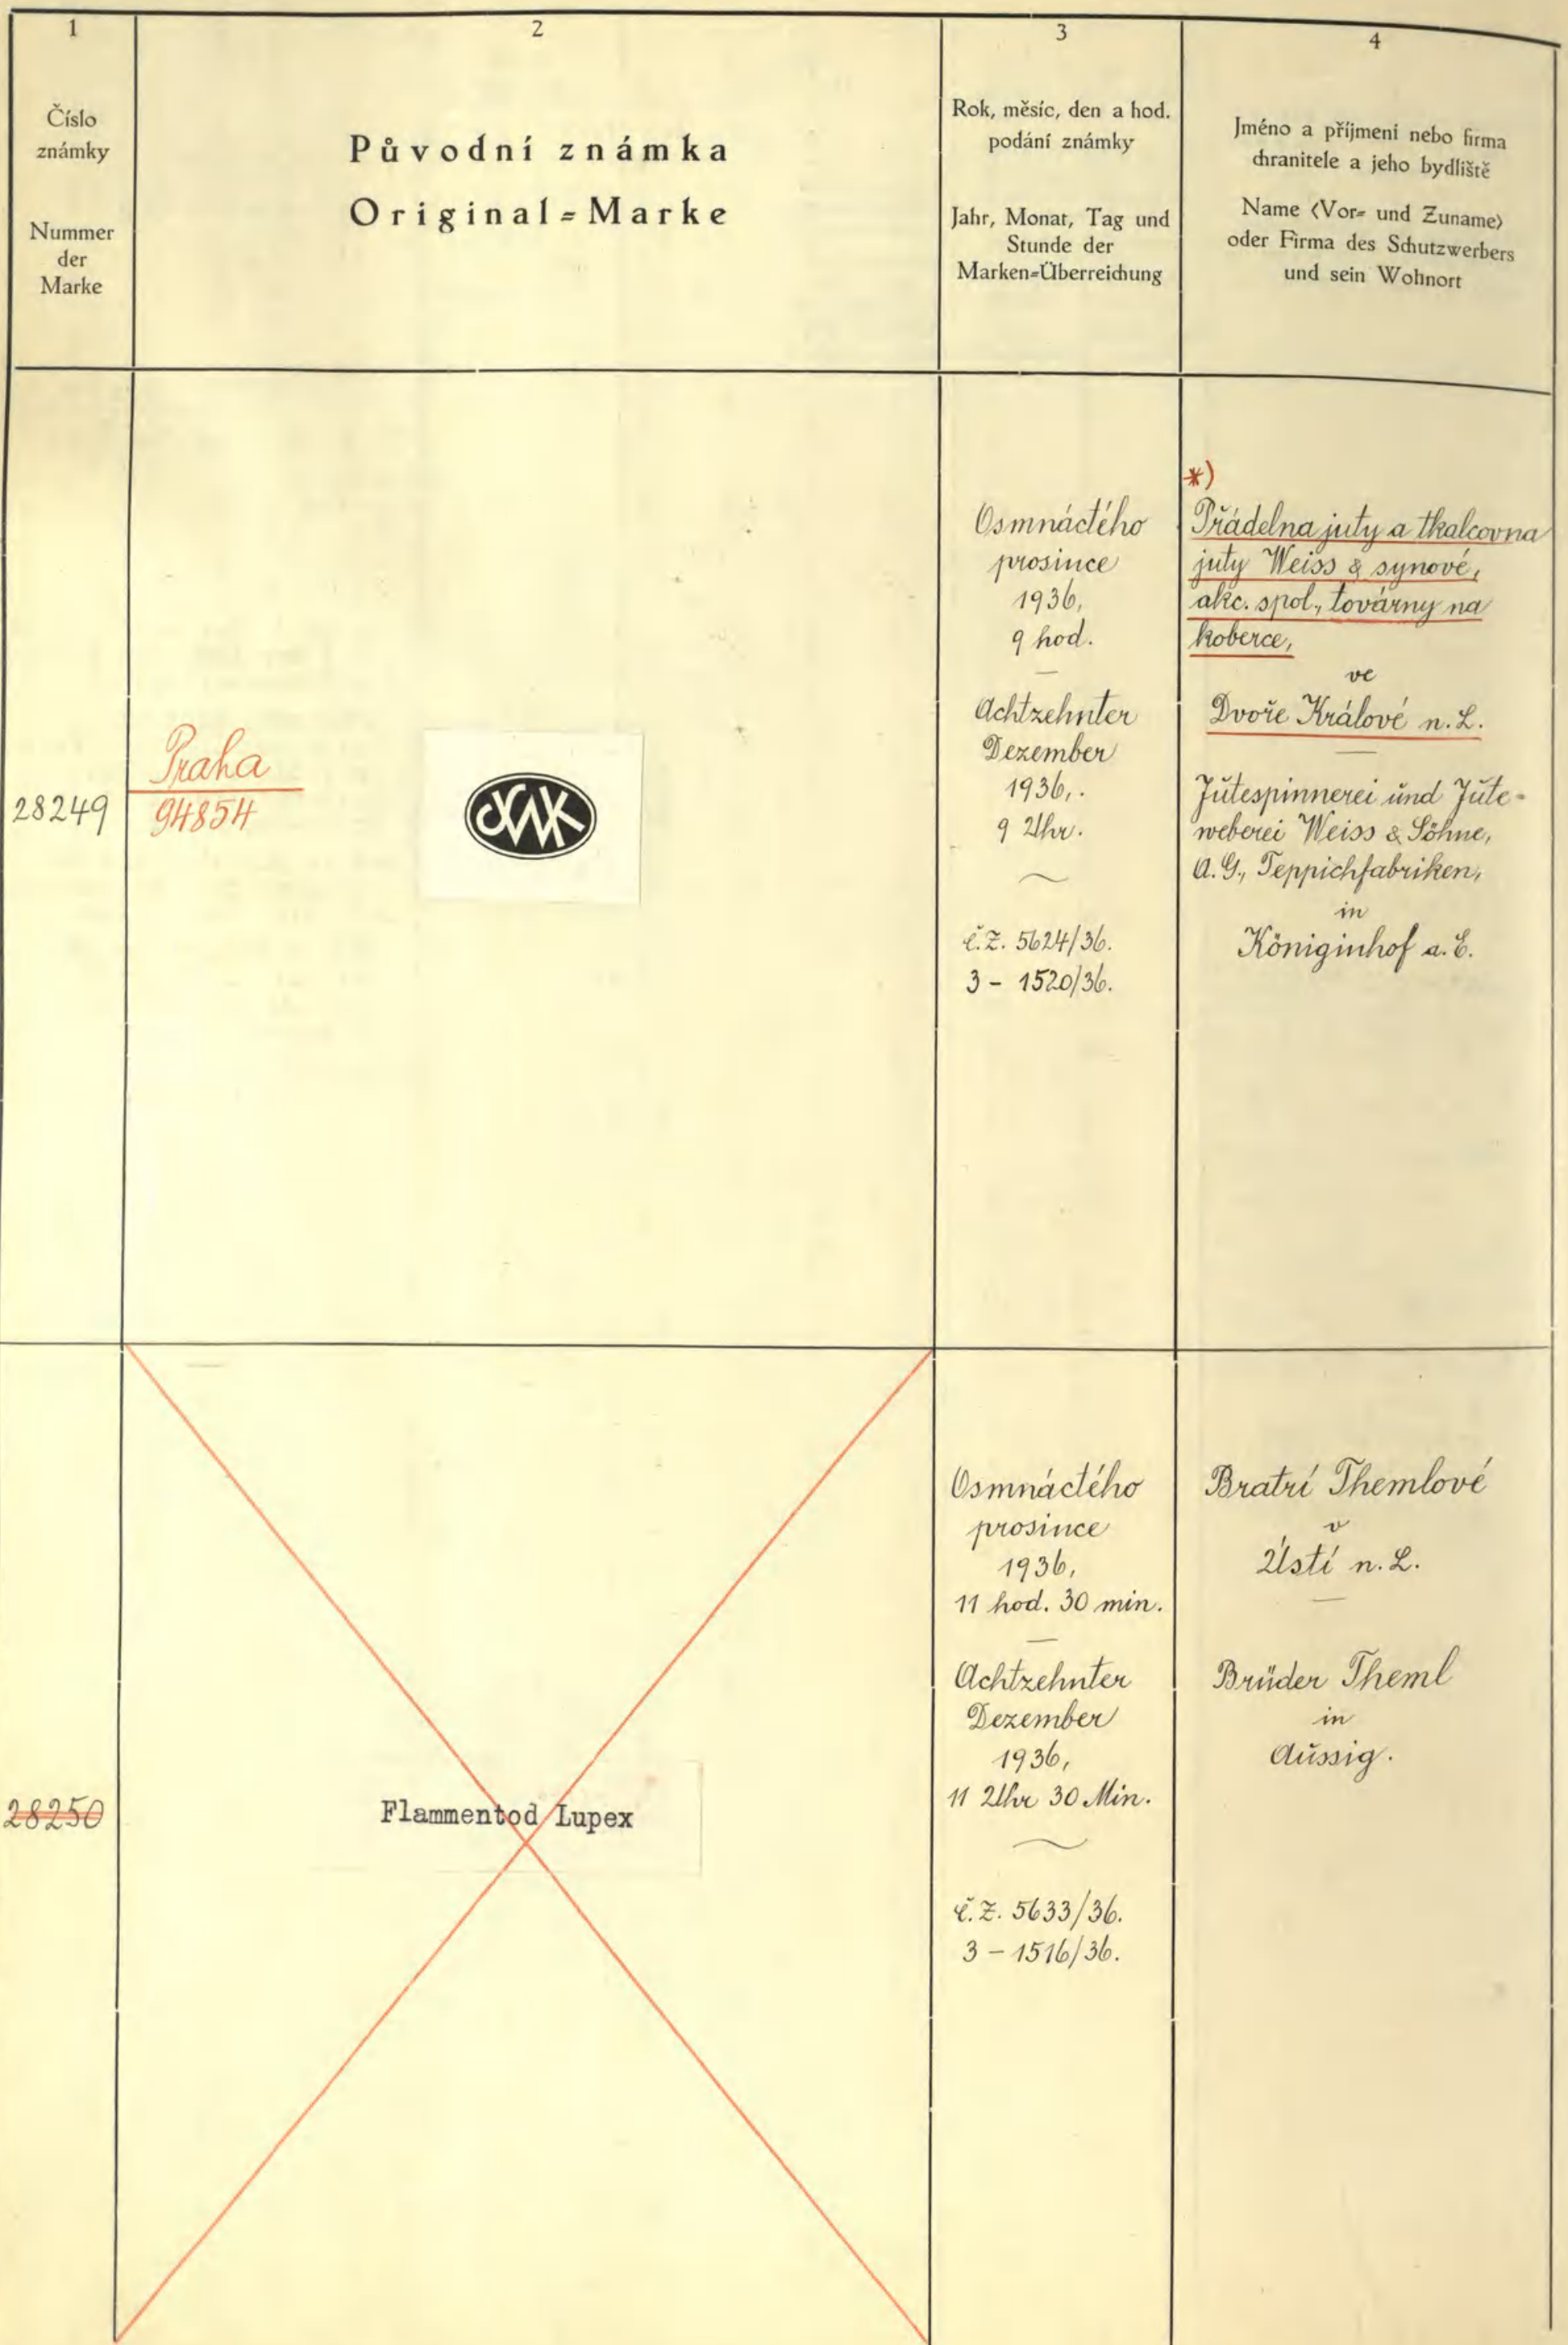 1
2
3
4
Číslo
známky
Nummer
der
Marke
Původní známka
Original=Marke
Rok, měsíc, den a hod.
podání známky
Jahr, Monat, Tag und
Stunde der
Marken=Überreichung
Jméno a příjmení nebo firma
chranitele a jeho bydliště
Name (Vor= und Zuname)
oder Firma des Schutzwerbers
und sein Wohnort
28249
Praha
94854
Osmnáctého
prosince
1936,
9 hod.
Achtzehnter
Dezember
1936,.
9 Uhr.
č.Z. 5624/36.
3 - 1520/36.
*)
Přádelna juty a tkalcovna
juty Weiss & synové,
akc. spol., továrny na
koberce,
ve
Dvoře Králové n. L.
Jutespinnerei und Jute-
weberei Weiss & Söhne,
A.G., Teppichfabriken,
in
Königinhof a. E.
28250
Flammentod Lupex
Osmnáctého
prosince
1936,
11 hod. 30 min.
Achtzehnter
Dezember
1936,
11 Uhr 30 Min.
č.Z. 5633/36.
3 - 1516/36.
Bratří Themlové
v
Ústí n. L.
Brüder Theml
in
Aussig.